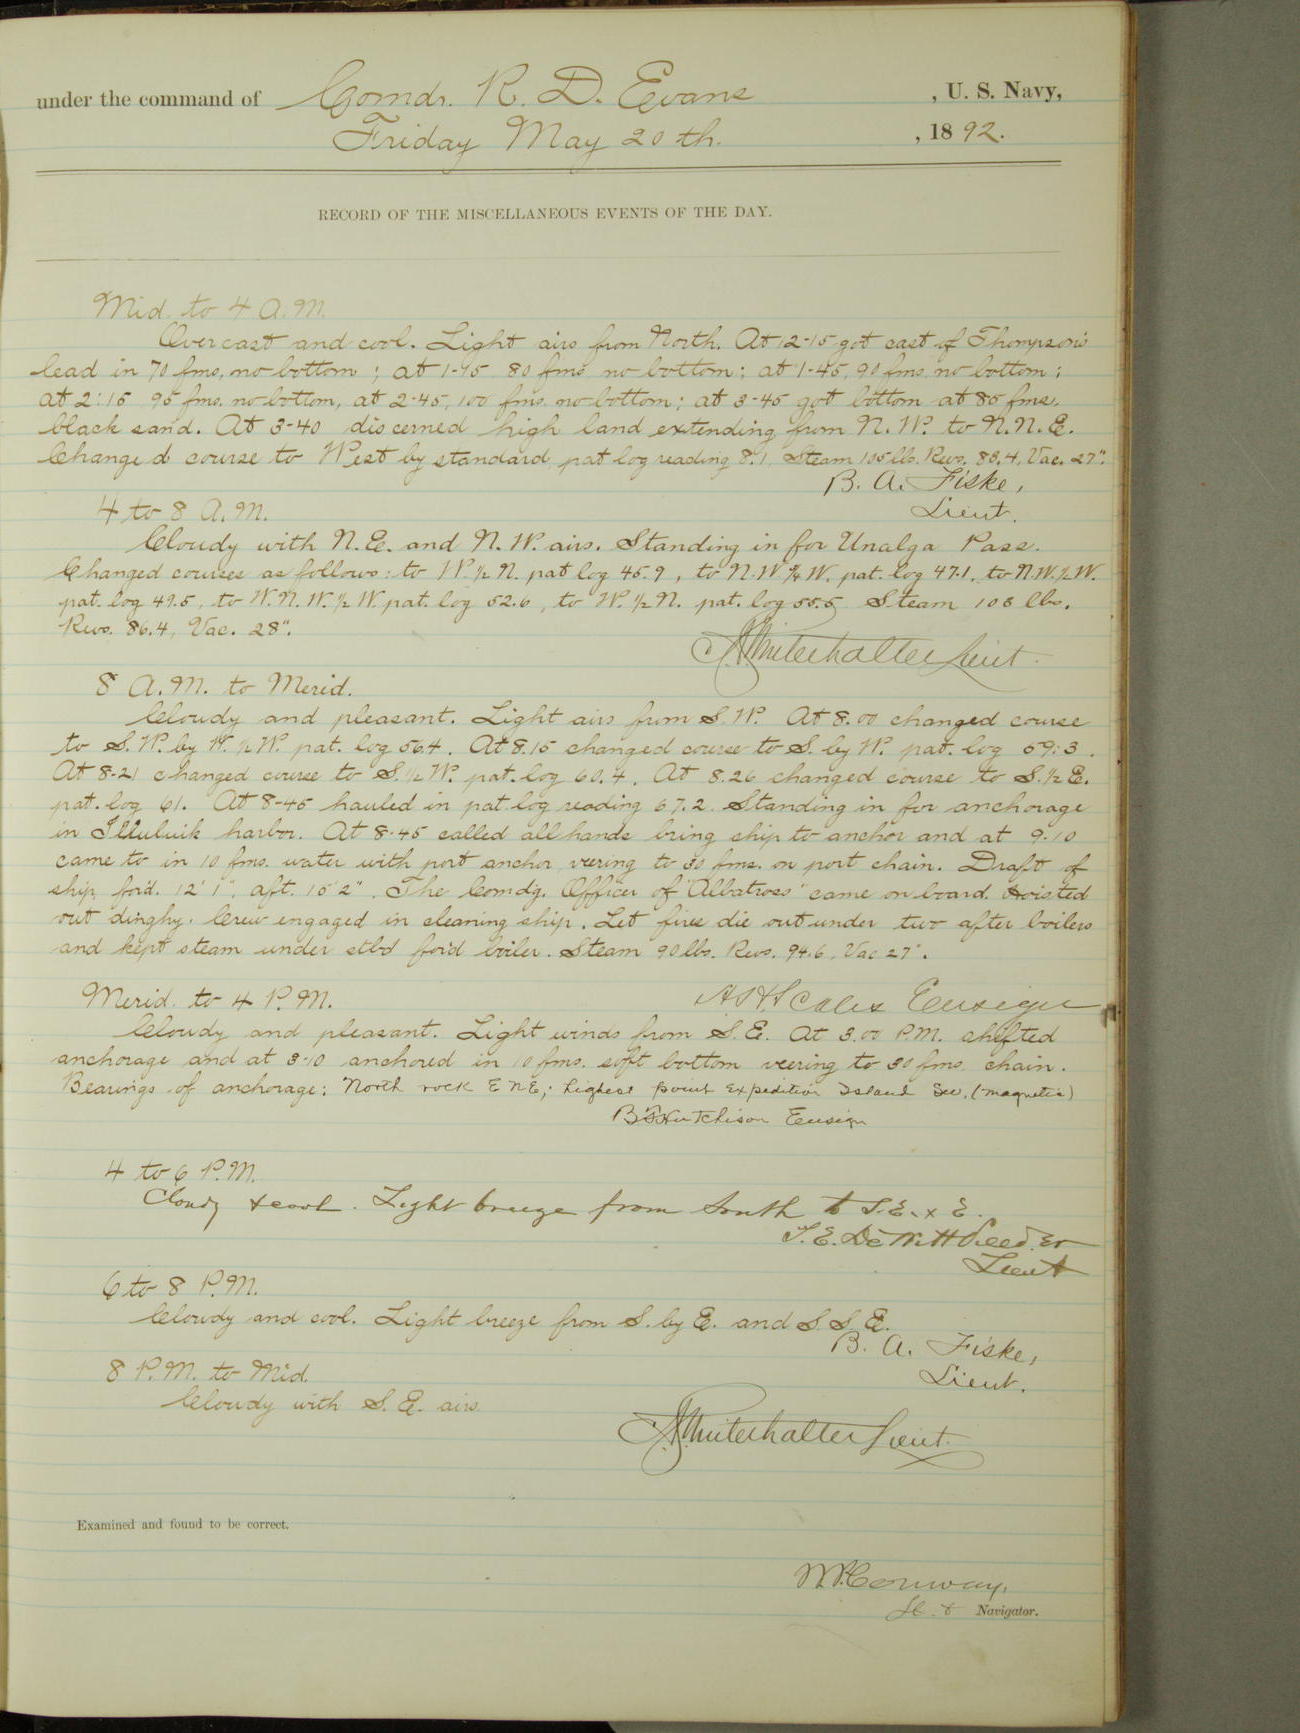 under the command of Comdr. R. D. Evans, U. S. Navy,
Friday May 20th., 1892.
RECORD OF THE MISCELLANEOUS EVENTS OF THE DAY.
Mid. to 4 A.M.
Overcast and cool. Light airs from North. At 12-15 got cast of Thompson's
lead in 70 fms, no bottom; at 1-15 80 fms no bottom; at 1-45, 90 fms. no bottom;
at 2:15 95 fms. no bottom, at 2-45, 100 fms. no bottom; at 3-45 got bottom at 85 fms.
black sand. At 3-40 discerned high land extending from N.W. to N.N.E.
Changed course to West by standard, pat log reading 8.1. Steam 105 lbs. Revs. 88.4, Vac. 27".
B. A. Fiske,
Lieut.
4 to 8 A.M.
Cloudy with N.E. and N.W. airs. Standing in for Unalga Pass.
Changed courses as follows: to W. ½ N. pat log 45.9, to N.W. ¾ W. pat. log 47.1. to N.W. ½ W.
pat. log 49.5, to W.N.W. ½ W. pat. log 52.6, to W. ½ N. pat. log 55.5 Steam 108 lbs.
Revs. 86.4, Vac. 28".
Winterhalter Lieut.
8 A.M. to Merid.
Cloudy and pleasant. Light airs from S.W. At 8.00 changed course
to S.W. by W. ½ W. pat. log 56.4. At 8.15 changed course to S. by W. pat. log 59.3.
At 8-21 changed course to S. ½ W. pat. log 60.4. At 8.26 changed course to S. ½ E.
pat. log 61. At 8-45 hauled in pat. log reading 67.2. Standing in for anchorage
in Illuluik harbor. At 8-45 called all hands bring ship to anchor and at 9:10
came to in 10 fms. water with port anchor veering to 30 fms. on port chain. Draft of
ship, for'd. 12' 1", aft. 15' 2". The Comdg. Officer of "Albatross" came on board. Hoisted
out dinghy. Crew engaged in cleaning ship. Let fires die out under two after boilers
and kept steam under stb'd for'd boiler. Steam 90 lbs. Revs. 94.6, Vac 27".
Scales Ensign
Merid. to 4 P.M.
Cloudy and pleasant. Light winds from S.E. At 3.00 P.M. shifted
anchorage and at 3-10 anchored in 10 fms. soft bottom veering to 30 fms. chain.
Bearings of anchorage: North rock E N E; highest point Expedition Island SW. (magnetic)
Hutchison Ensign
4 to 6 P.M.
Cloudy & cool. Light breeze from South to S.E. x E.
T. E. DeWitt Veeder
Lieut
6 to 8 P.M.
Cloudy and cool. Light breeze from S. by E. and S.S.E.
B. A. Fiske,
Lieut.
8 P.M. to Mid.
Cloudy with S.E. airs.
Winterhalter Lieut.
Examined and found to be correct.
W.P. Conway,
Navigator.